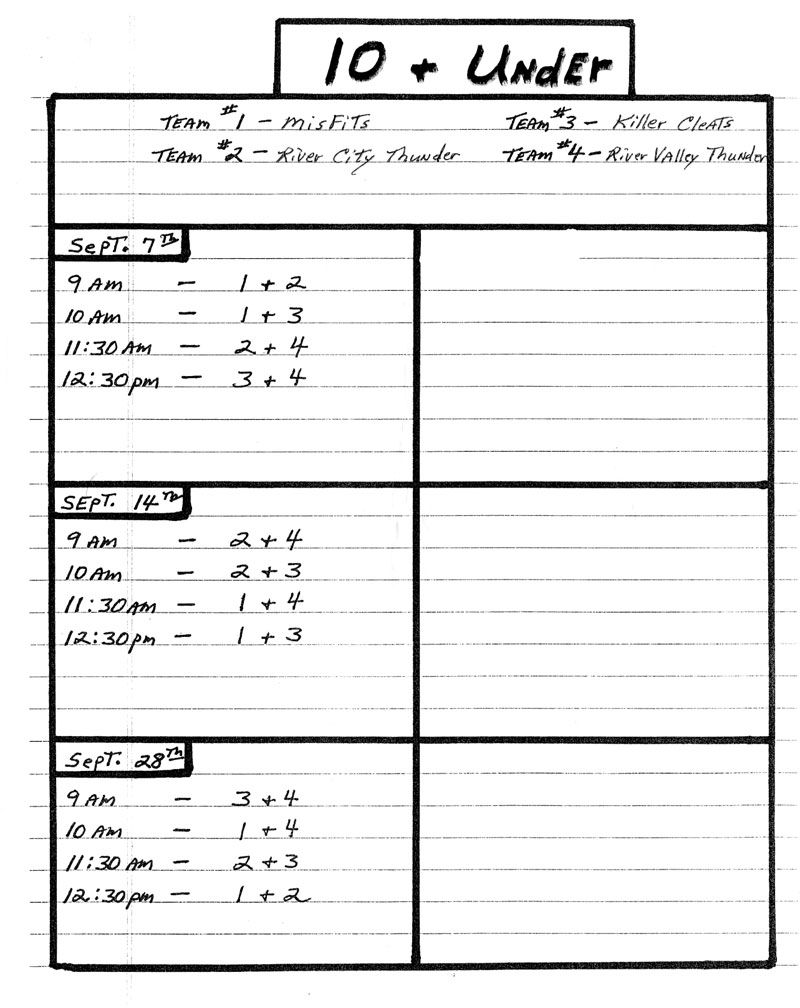 10 + UNdEr
TEAM #1 - misFiTs TEAM #3 - Killer CleATs
TEAM #2 - River City Thunder TEAM #4 - River VAlley Thunder
SepT. 7Th
9 Am - 1 + 2
10 Am - 1 + 3
11:30 Am - 2 + 4
12:30pm - 3 + 4
SEPT. 14Th
9 Am - 2 + 4
10 Am - 2 + 3
11:30Am - 1 + 4
12:30pm - 1 + 3
SepT. 28Th
9 Am - 3 + 4
10 Am - 1 + 4
11:30 Am - 2 + 3
12:30pm - 1 + 2